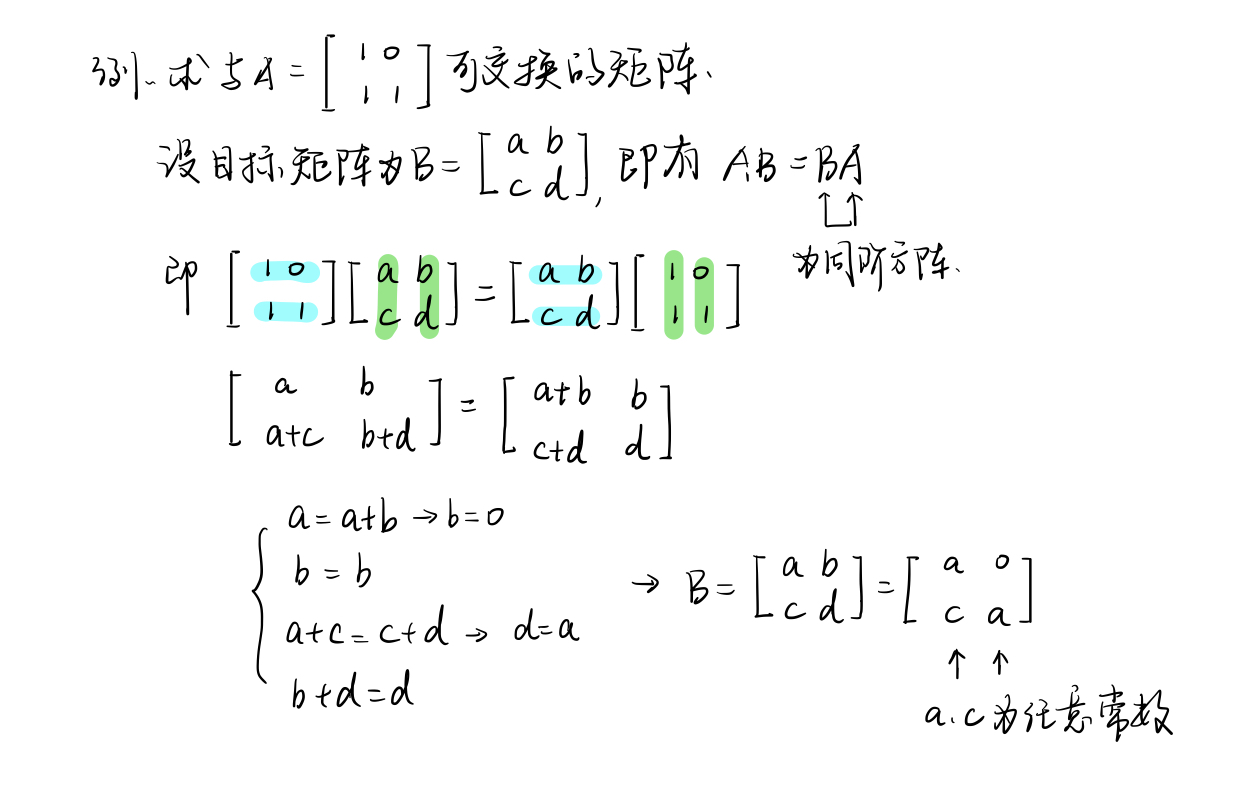 例. 求与A = [1 0; 1 1] 可交换的矩阵.
设目标矩阵为B = [a b; c d], 即有 AB = BA
为同阶方阵.
即 [1 0; 1 1][a b; c d] = [a b; c d][1 0; 1 1]
[a b; a+c b+d] = [a+b b; c+d d]
a = a+b → b=0
b = b
a+c = c+d → d=a
b+d=d
→ B = [a b; c d] = [a 0; c a]
↑ ↑
a.c为任意常数